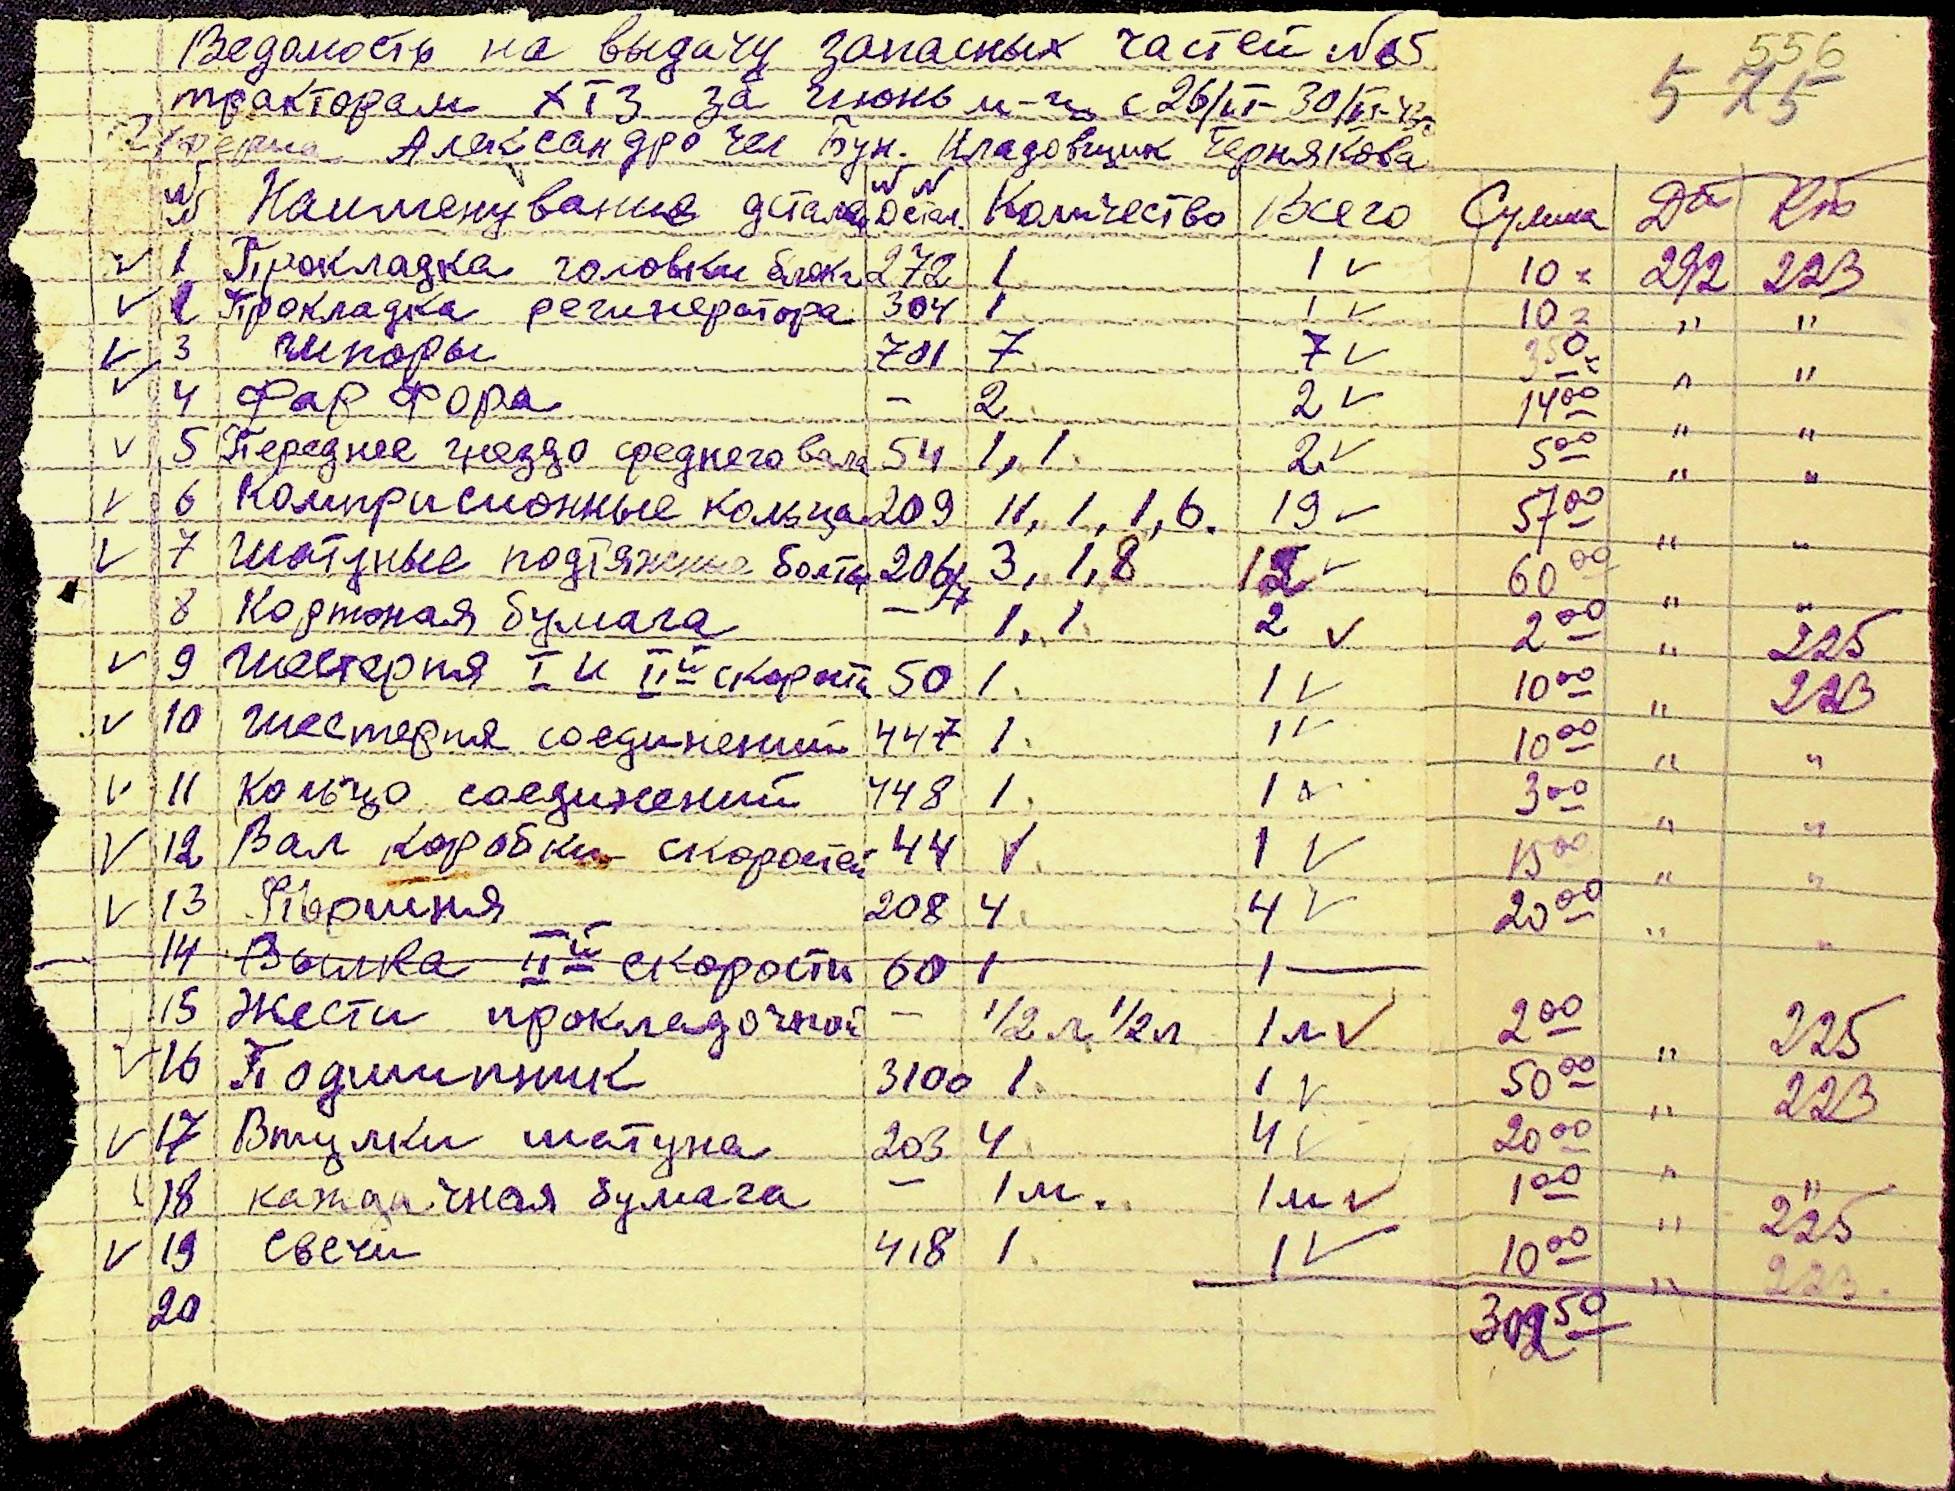 556
5 75
Ведомость на выдачу запасных частей №5
тракторам ХТЗ за июнь м-ц с 26/VI - 30/VI-43
ферма Александро чел Бун. Кладовщик Чернякова
№ Наименувание детале №№ детал. Количество Всего Сумма Дт Кт
1 Прокладка головки блока 272 1 1 10 292 223
2 Прокладка регинератора 304 1 1 10 " "
3 Шпоры 701 7 7 350 " "
4 Фар фора - 2 2 14 00 " "
5 Переднее гнездо среднего вала 54 1, 1. 2 5 00 " "
6 Комприсионные кольца 209 11, 1, 1, 6. 19 57 00 " "
7 Шатуные подтяжные болты 206 3, 1, 8 12 60 00 " "
8 Кортоная бумага - 1, 1. 2 2 00 " 225
9 Шестерня I и II й скорости 50 1. 1 10 00 " 223
10 Шестерня соединений 447 1. 1 10 00 " "
11 Кольцо соединений 448 1. 1 3 00 " "
12 Вал коробки скоростей 44 1. 1 15 00 " "
13 Поршня 208 4. 4 20 00 " "
14 Вылка II й скорости 60 1 1
15 Жести прокладочной - 1/2 л, 1/2 л 1 л 2 00 " 225
16 Подшипник 3100 1. 1 50 00 " 223
17 Втулки шатуна 203 4. 4 20 00 " "
18 бумага - 1 м. 1 м 1 00 " 225
19 Свечи 418 1. 1 10 00 " 223.
20
302 50